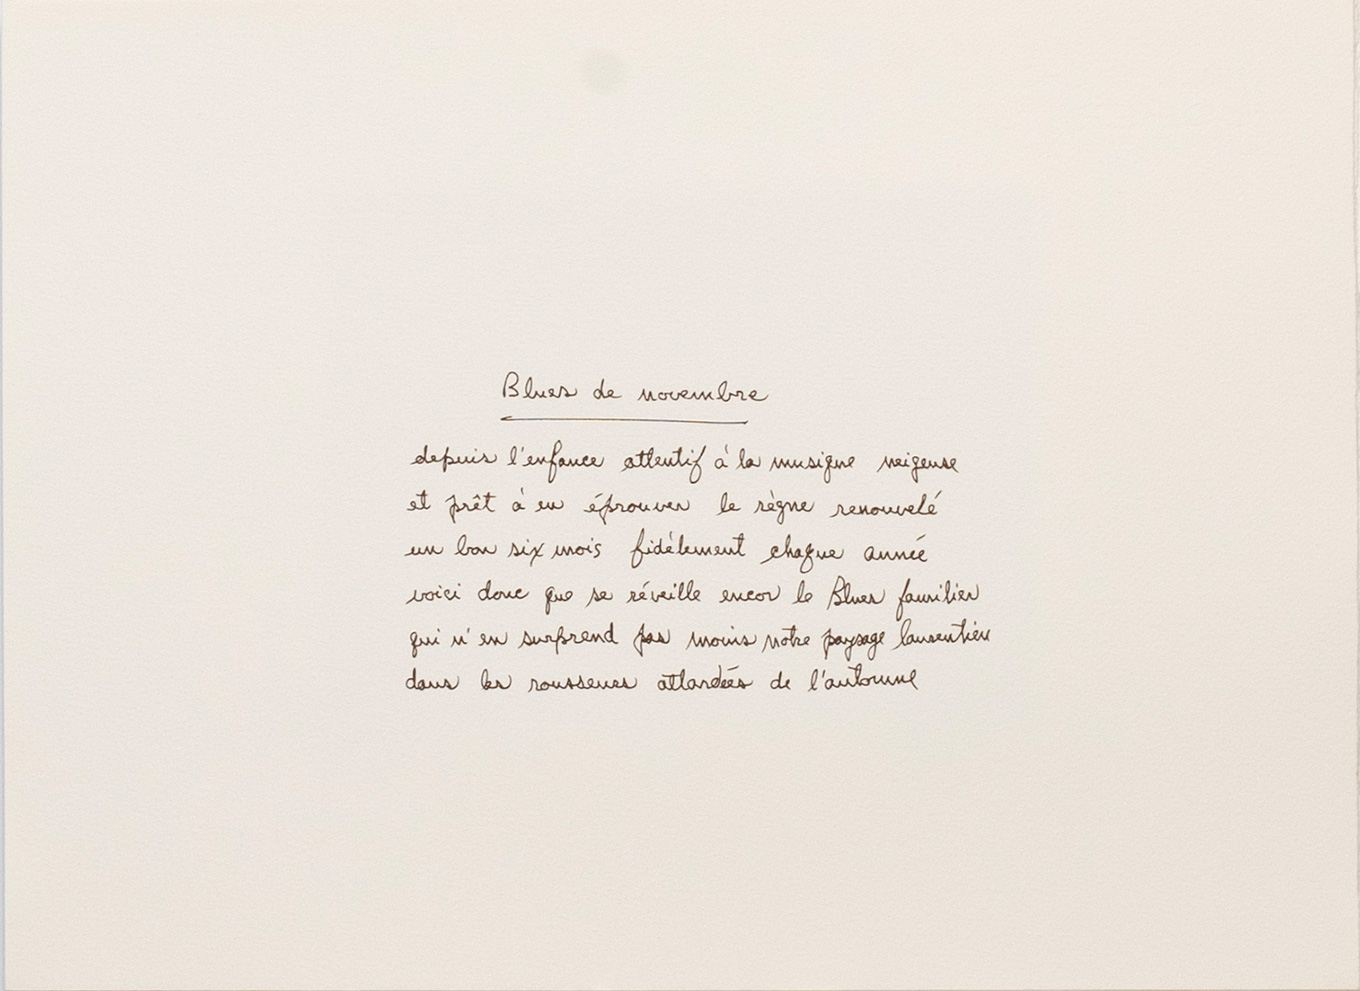 Blues de novembre
depuis l'enfance attentif à la musique neigeuse
et prêt à en éprouver le règne renouvelé
un bon six mois fidèlement chaque année
voici donc que se réveille encor le Blues familier
qui n'en surprend pas moins notre paysage laurentien
dans les rousseurs attardées de l'automne